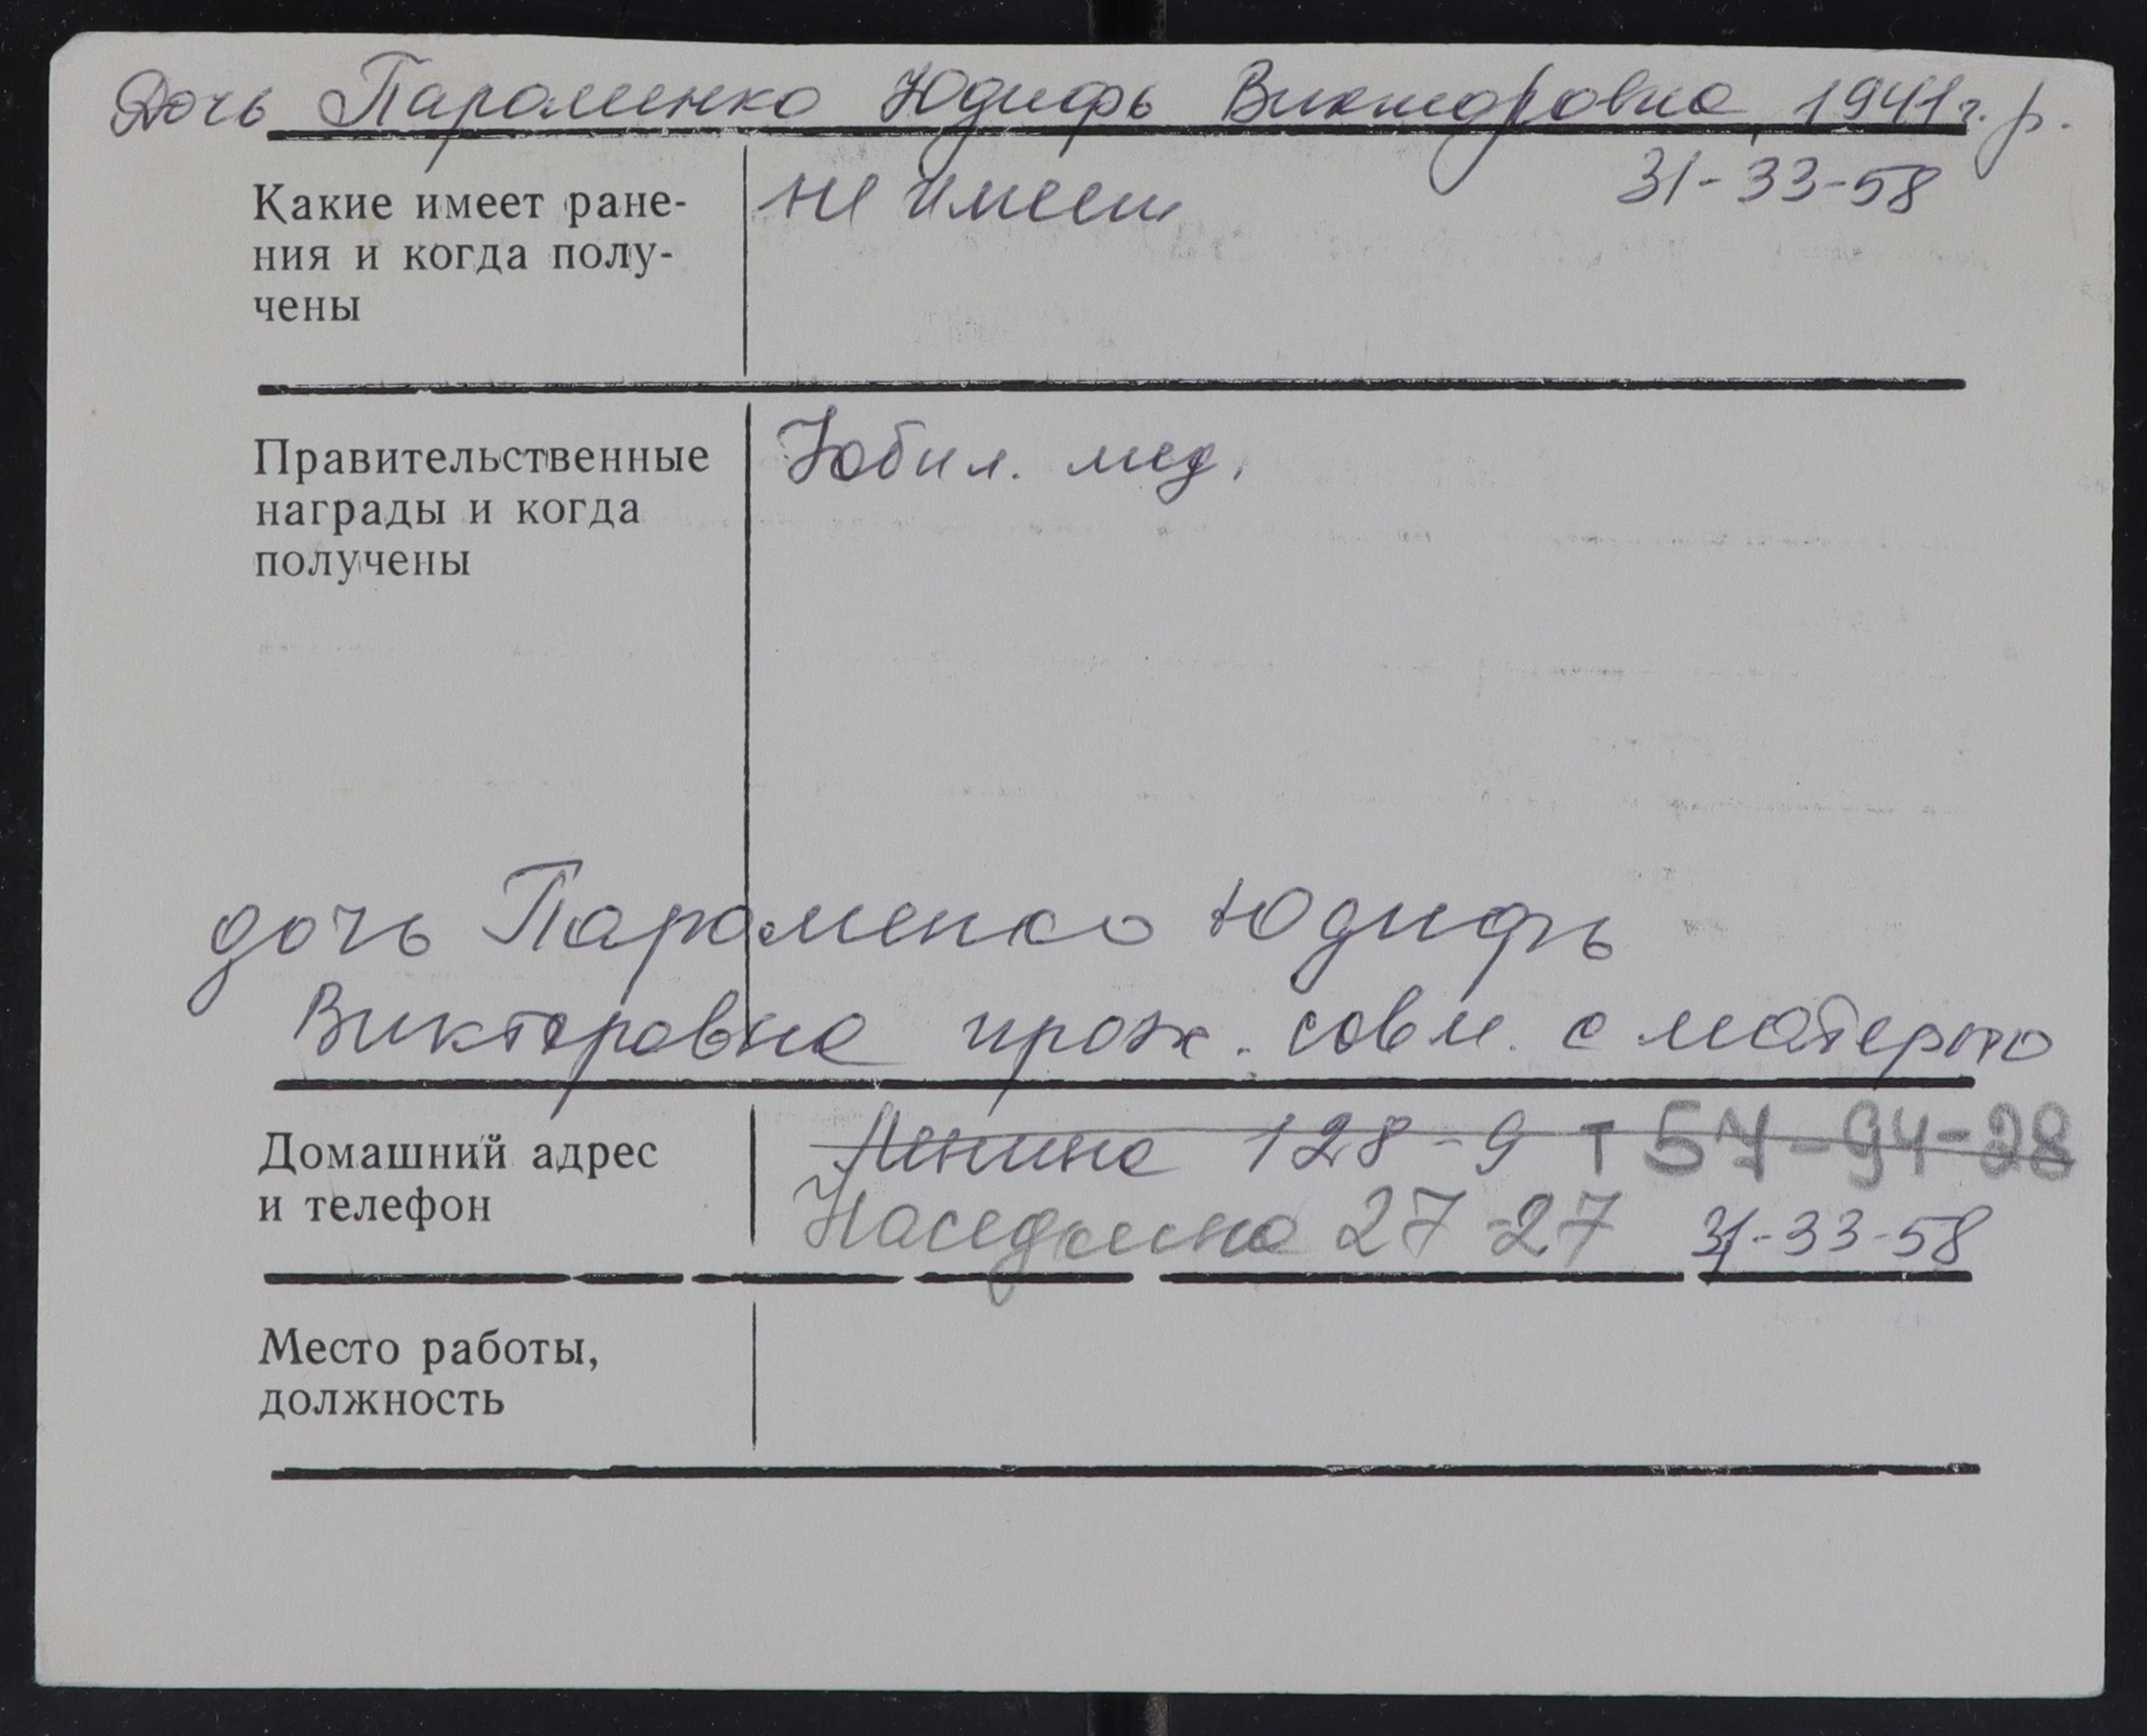 Дочь Пароменко Юдифь Викторовна, 1941 г. р.
31-33-58
Какие имеет ране-
ния и когда полу-
чены
не имеет
Правительственные
награды и когда
получены
Юбил. мед.
дочь Пароменко Юдифь
Викторовна прож. совм. с матерью
Домашний адрес
и телефон
Ленина 128-9 т 57-94-28
Наседкина 27-27 31-33-58
Место работы,
должность